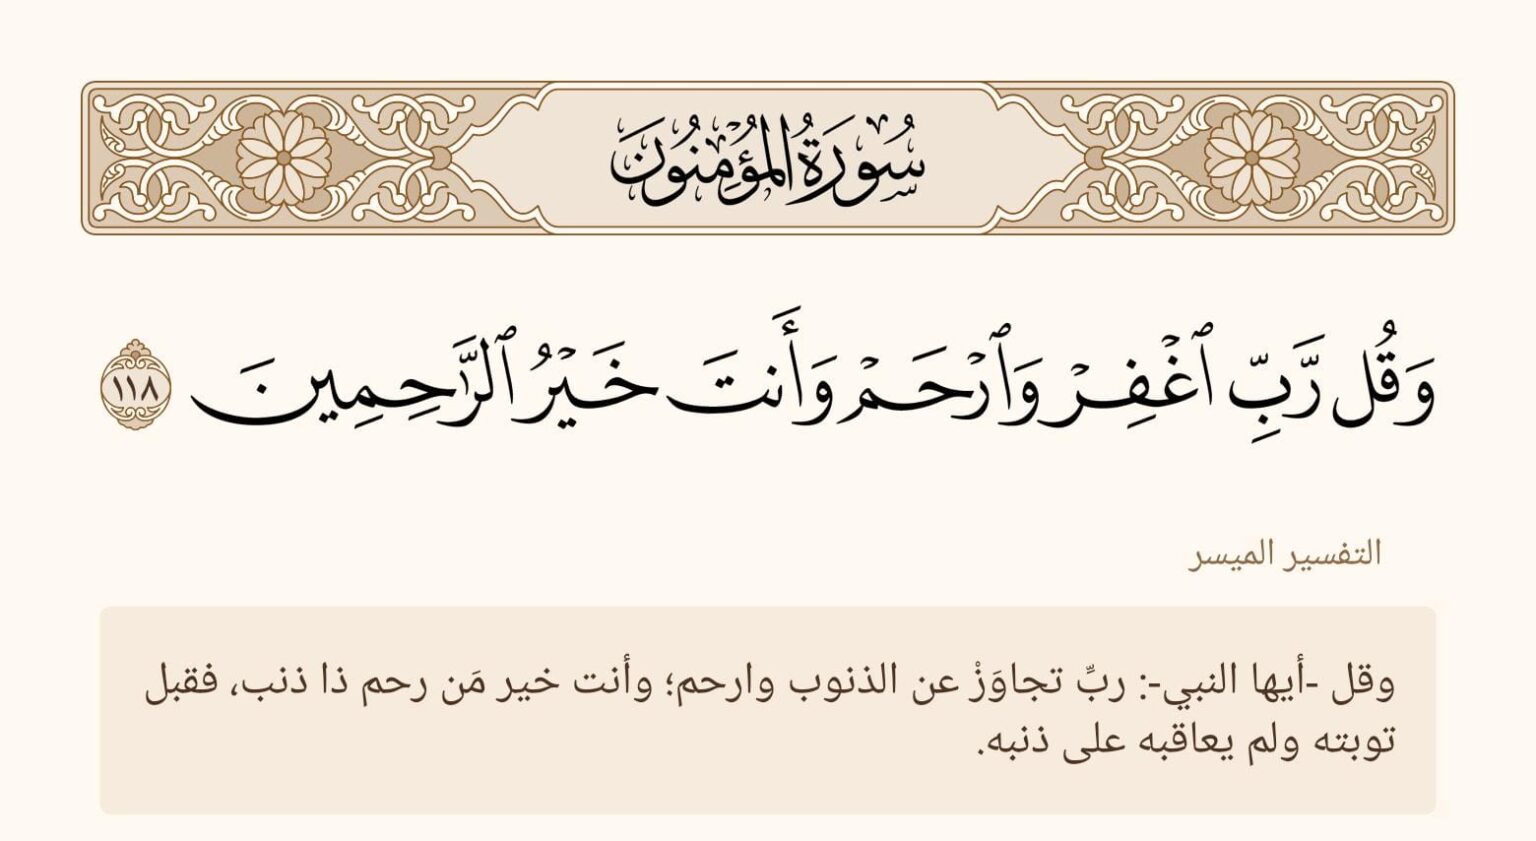 سُورَةُ المُؤْمِنُونَ
وَقُل رَّبِّ ٱغْفِرْ وَٱرْحَمْ وَأَنتَ خَيْرُ ٱلرَّٰحِمِينَ ١١٨
التفسير الميسر
وقل -أيها النبي-: ربِّ تجاوَزْ عن الذنوب وارحم؛ وأنت خير مَن رحم ذا ذنب، فقبل
توبته ولم يعاقبه على ذنبه.